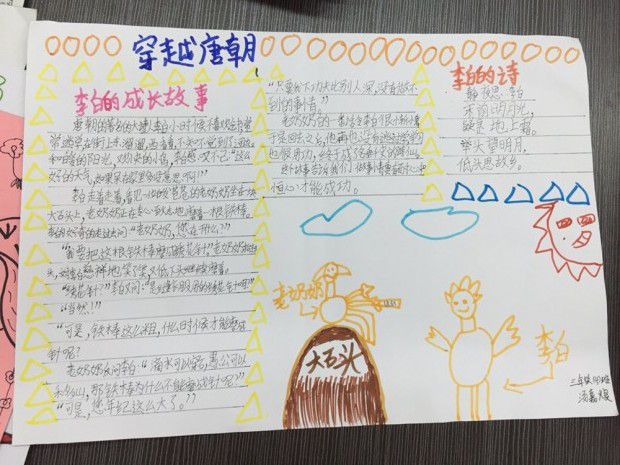 穿越唐朝
李白的成长故事
唐朝的著名的大诗人李白小时候不喜欢念书
常常逃学去街上
的阳光,欢快的小鸟
的天气,如果呆在屋里多没意思啊!"
李白走着走着,看见一位的老奶奶坐在一块
大石头上,老奶奶正在专心磨着一根铁棒。
我的老奶奶走过去问"老奶奶,您在什么?"
"我要把这根铁棒磨成绣花针。"老奶奶抬起
头,对李白慈祥地笑了笑又低下头继续磨着。
"绣花针?"李白又问:"是缝衣服用的绣花针吗?"
"当然!"
"可是,铁棒这么粗,什么时候才能磨成
针呢?"
老奶奶反问李白:"滴水可以穿石,愚公可以
移山,那铁棒为什么不能磨成针呢?"
"可是,您年纪这么大了。"
"只要我下功夫比别人深,没有做不
到的事情。"
老奶奶的一番话令李白很惭愧
于是回去之后,他再也没有逃过学
也很用功,终于成了
这个故事告诉我们:做事情要
恒心,才能成功。
李白的诗
静夜思 李白
床前明月光,
疑是地上霜。
举头望明月,
低头思故乡。
老奶奶
大石头
李白
三年级